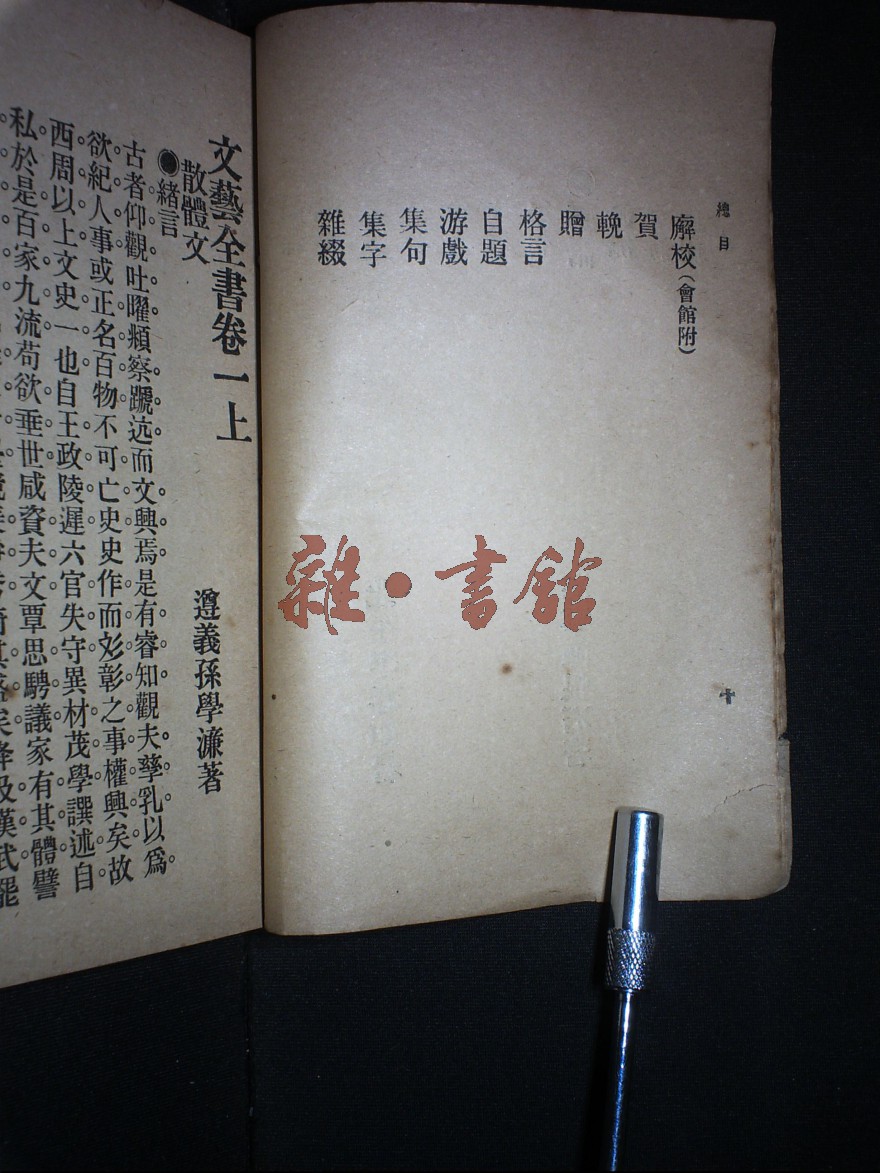 總目
廨校（會館附）
賀
輓
贈
格言
自題
游戲
集句
集字
雜綴
十
文藝全書卷一上
遵義孫學濂著
散體文
●緒言
古者仰觀吐曜頫察蹏迒而文興焉是有睿知觀夫孳乳以爲
欲紀人事或正名百物不可亡史史作而彣彰之事權興矣故
西周以上文史一也自王政陵遲六官失守異材茂學譔述自
私於是百家九流苟欲垂世咸資夫文覃思騁議家有其體譬
矣降及漢武罷
雜·書館